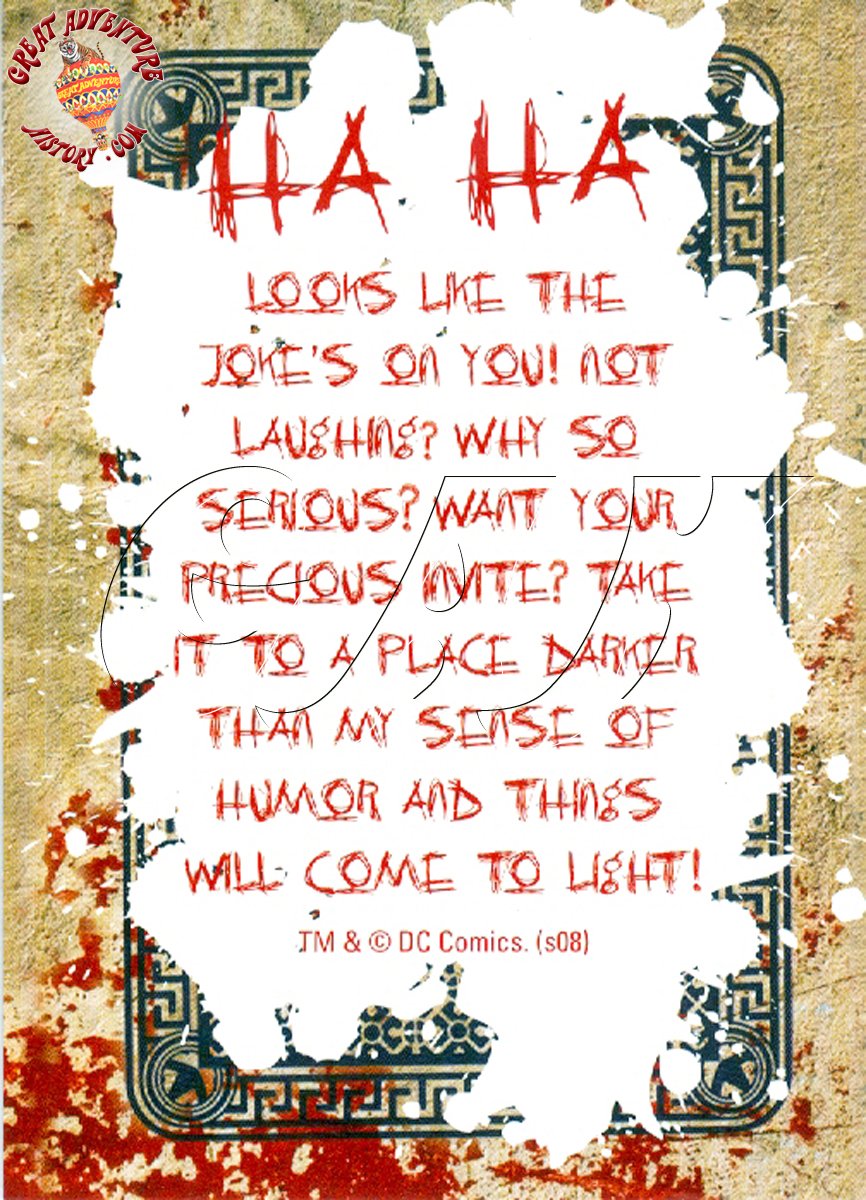 GREAT ADVENTURE
GREAT ADVENTURE
HISTORY.COM
HA HA
LOOKS LIKE THE
JOKE'S ON YOU! NOT
LAUGHING? WHY SO
SERIOUS? WANT YOUR
PRECIOUS INVITE? TAKE
IT TO A PLACE DARKER
THAN MY SENSE OF
HUMOR AND THINGS
WILL COME TO LIGHT!
TM & © DC Comics. (s08)